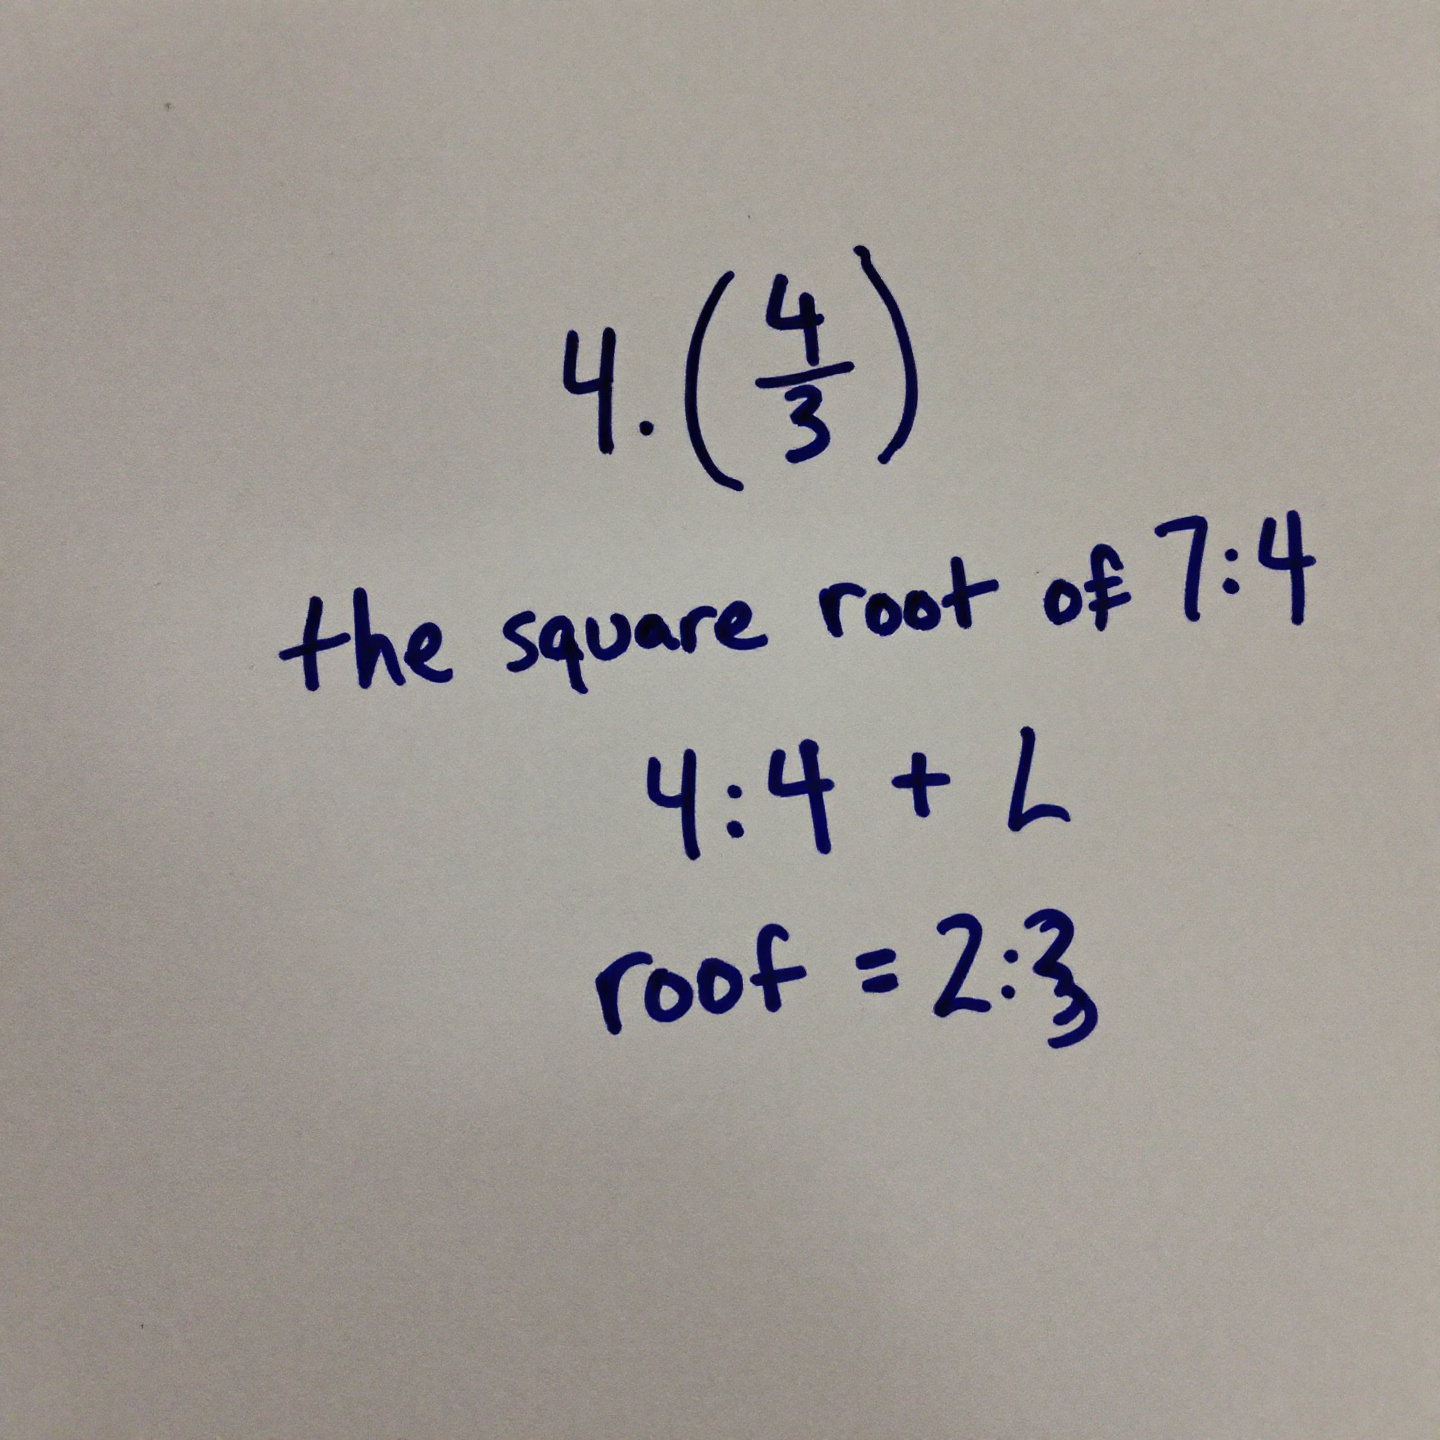 4. (4/3)
the square root of 7:4
4:4 + L
roof = 2:3